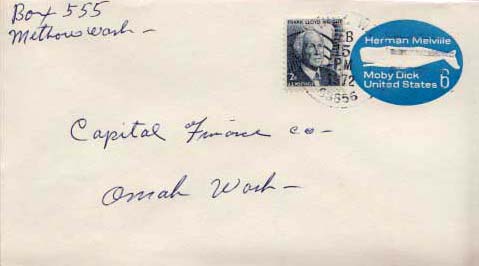 Box 555
Methow Wash -
FRANK LLOYD WRIGHT
2c
U.S. POSTAGE
15
PM
1972
Herman Melville
Moby Dick
United States 6
Capital Finance co -
Omak Wash -